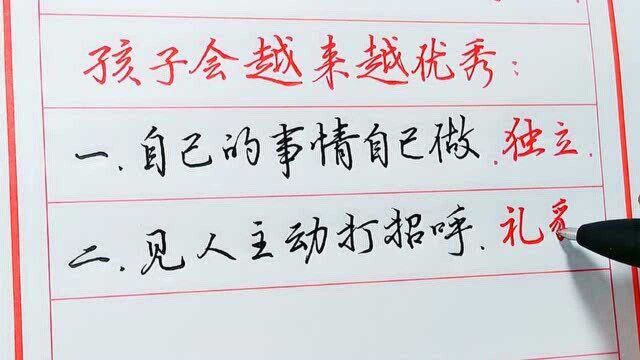 孩子会越来越优秀:
一.自己的事情自己做.独立.
二.见人主动打招呼.礼